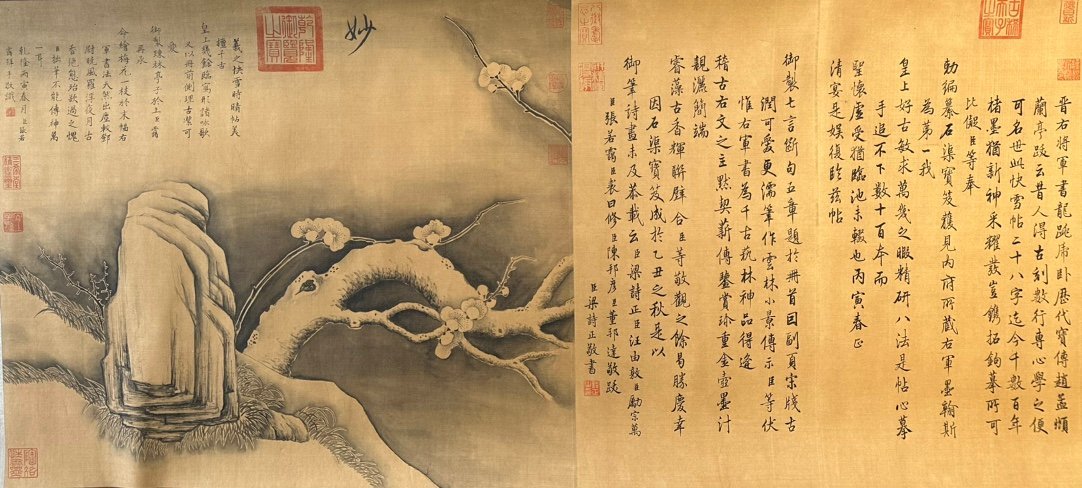 晉右將軍書龍跳虎臥歷代寶傳趙孟頫
蘭亭跋云昔人得古刻數行專心學之便
可名世此快雪帖二十八字迄今千數百年
楮墨猶新神采耀發豈鐫拓鉤摹所可
比儗臣等奉
勅編纂石渠寶笈獲見內府所藏右軍墨翰斯
為第一我
皇上好古敏求萬幾之暇精研八法是帖心摹
手追不下數十百本而
聖懷虛受猶臨池未輟也丙寅春正
清宴是娛復臨茲帖
御製七言斷句五章題於冊首因副頁宋牋古
潤可愛更濡筆作雲林小景傳示臣等伏
惟右軍書為千古蓺林神品得逢
稽古右文之主默契薪傳鑒賞珍重金壺墨汁
親灑簡端
睿藻古香輝聯璧合臣等敬觀之餘曷勝慶幸
因石渠寶笈成於乙丑之秋是以
御筆詩畫未及恭載云臣梁詩正臣汪由敦臣勵宗萬
臣張若靄臣裘曰修臣陳邦彥臣董邦達敬跋
臣梁詩正敬書
妙
乾隆御覽之寶
羲之快雪時晴帖美
擅千古
皇上幾餘臨寫形諸詠歌
又以冊前側理古潔可
愛
御製疎林亭子於上臣靄
再承
命繪梅花一枝於末幅右
軍書法天然出塵軼鄴
尉曉風羅浮夜月古
香絕態殆欲過之愧
臣拙筆不能傳神萬
一耳
乾隆丙寅春月臣張若
靄拜手敬識